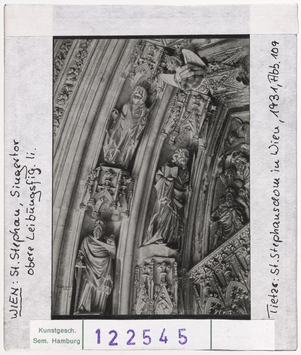 WIEN: St. Stephan, Singertor
obere Leibungsfig. li.
Tietze: St. Stephansdom in Wien, 1931, Abb. 109
Kunstgesch.
Sem. Hamburg
122545